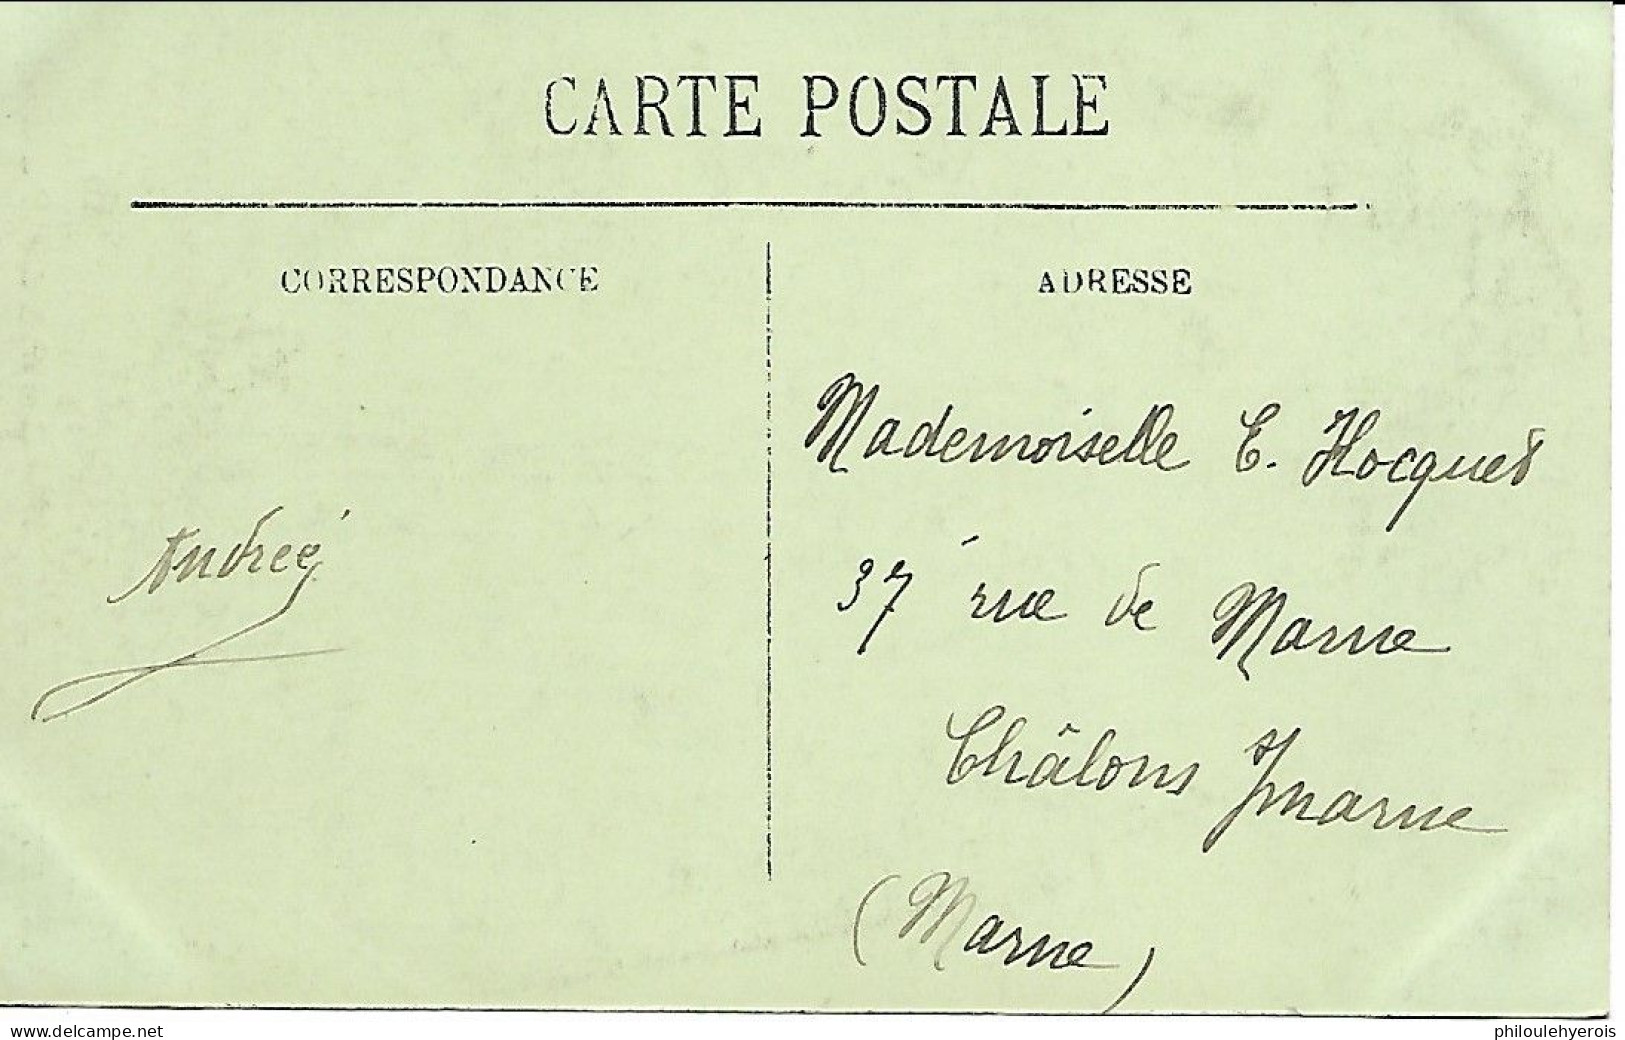 CARTE POSTALE
CORRESPONDANCE
ADRESSE
Mademoiselle E. Hocquet
37 rue de Marne
Châlons s/marne
(Marne)
Andrée
www.delcampe.net
philoulehyerois